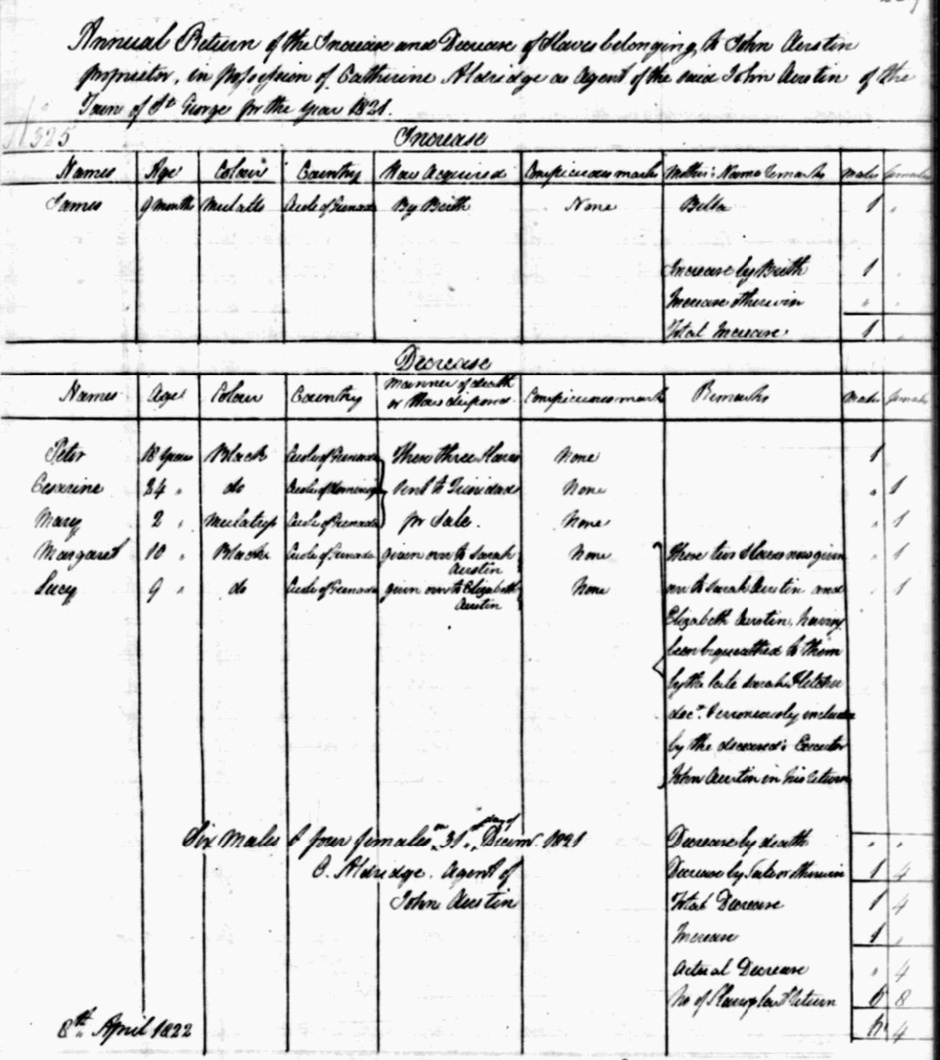 Annual Return of the Increase and Decrease of Slaves belonging to John Austin
proprietor, in possession of Catherine Aldridge as Agent of the said John Austin of the
Town of St George for the year 1821.
325
Increase
Names Age Colour Country How Acquired Conspicuous marks Mother's Name & remarks Males females
James 9 months Mulatto Creole of Grenada By Birth None Bella 1 "
Increase by Birth 1 "
Increase otherwise " "
Total Increase 1 "
Decrease
Names Age Colour Country Manner of death or How disposed Conspicuous marks Remarks Males females
Peter 18 years Black Creole of Grenada These three Slaves None 1
34 " do sent to Trinidad None " 1
Mary 2 " Creole of Grenada for Sale. None " 1
Margaret 10 " Black Creole of Grenada given over to Sarah Austin None These two Slaves now given " 1
Lucy 9 " do Creole of Grenada given over to Elizabeth Austin None over to Sarah Austin and " 1
Elizabeth Austin, having
been bequeathed to them
by the late Sarah Fletcher
decd. & erroneously included
by the deceased's Executor
John Austin in his return
Six Males & four females on 31st day of Decem. 1821 Decrease by death " "
C. Aldridge. Agent of Decrease by Sale or otherwise 1 4
John Austin Total Decrease 1 4
Increase 1 "
Actual Decrease " 4
No of Slaves last Return 6 8
8th April 1822 6 4